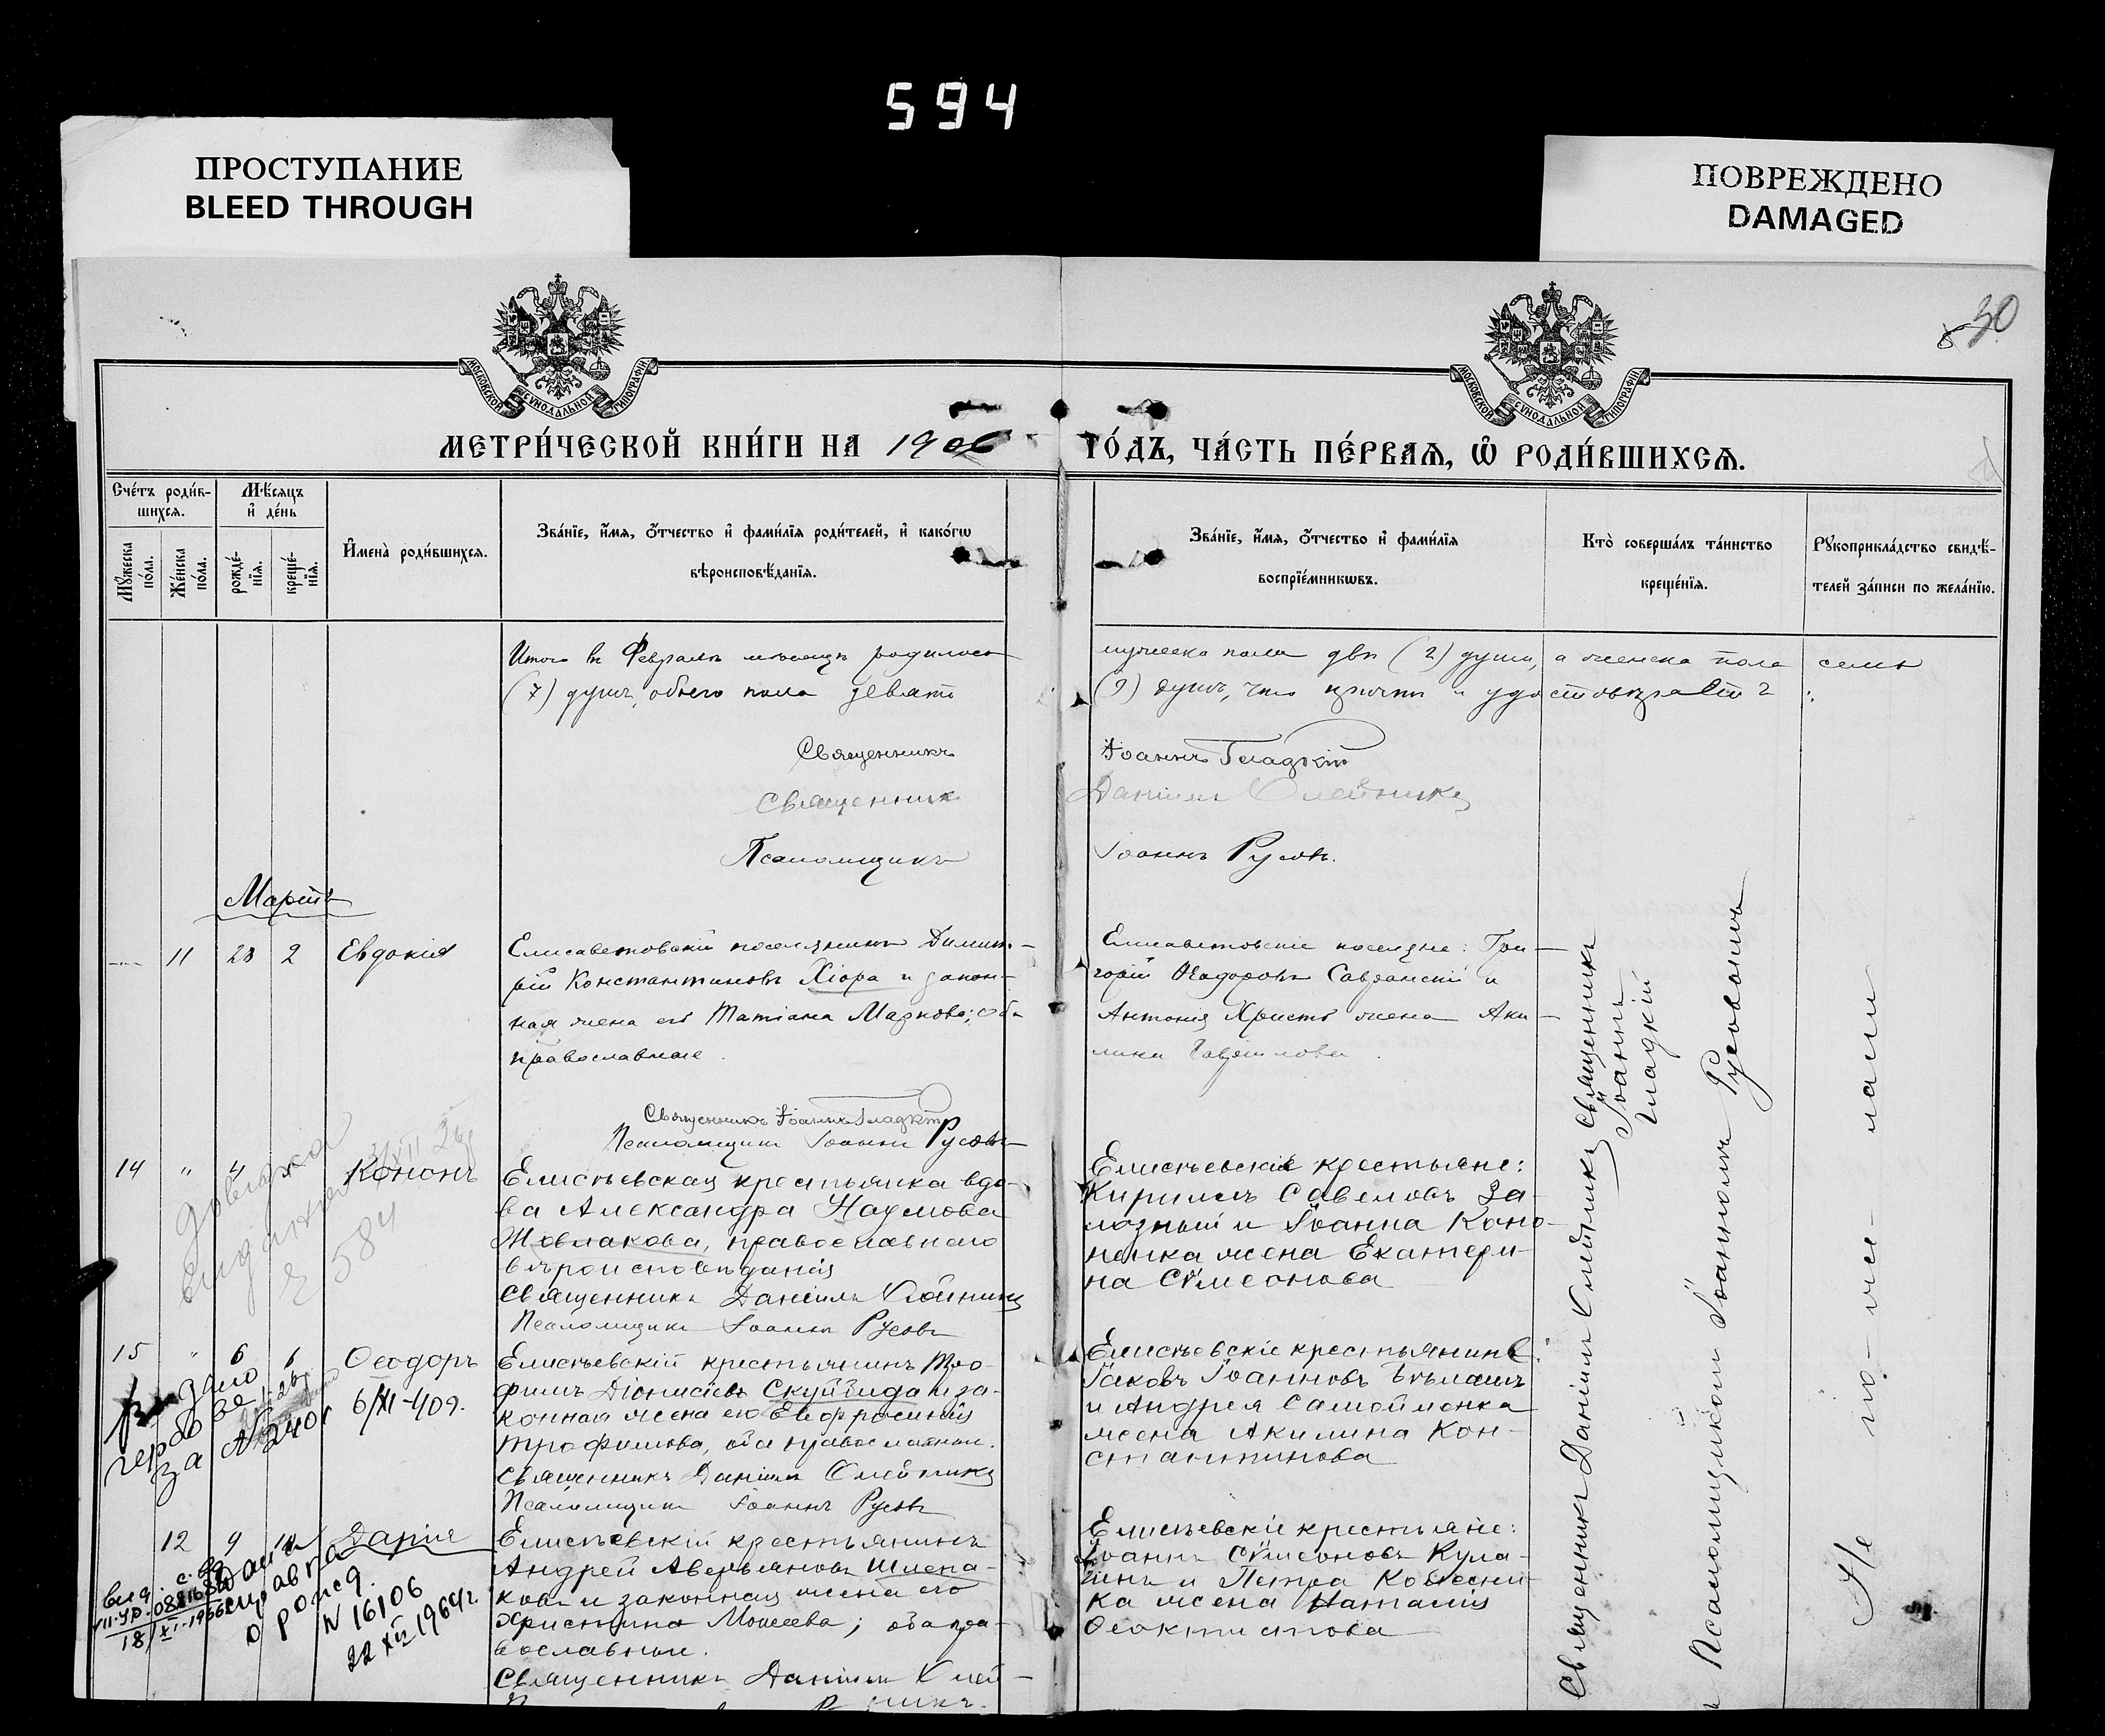 594
ПРОСТУПАНИЕ
BLEED THROUGH
ПОВРЕЖДЕНО
DAMAGED
30
МОСКОВСКОЙ СѴНОДАЛЬНОЙ ТИПОГРАФІИ
МОСКОВСКОЙ СѴНОДАЛЬНОЙ ТИПОГРАФІИ
МЕТРИ́ЧЕСКОЙ КНИ́ГИ НА 1906
ГО́ДЪ, ЧА́СТЬ ПЕ́РВАѦ, Ѡ҆ РОДИ́ВШИХСѦ.
Сче́тъ роди́в-
шихсѧ.
Мꙋ́жеска по́ла.
Же́нска по́ла.
Мѣ́сѧцъ
и҆ де́нь
рожде́-
нїѧ.
креще́-
нїѧ.
И҆мена̀ роди́вшихсѧ.
Зва́нїе, и҆́мѧ, ѻ҆́тчество и҆ фами́лїѧ роди́телей, и҆ како́гѡ
вѣроисповѣ́данїѧ.
Зва́нїе, и҆́мѧ, ѻ҆́тчество и҆ фами́лїѧ
воспрїе́мникѡвъ.
Кто̀ соверша́лъ та́инство
креще́нїѧ.
Рꙋкоприкла́дство свидѣ́-
телей за́писи по жела́нїю.
Итого въ Февралѣ мѣсяцѣ родилось
(7) душъ, обоего пола девять
мужеска пола двѣ (2) души, а женска пола семь
(9) душъ, что
Священникъ
Іоаннъ Гладкій
Священникъ
Даніилъ Олейникъ
Псаломщикъ
Іоаннъ Русовъ.
Мартъ
11 28 2 Евдокія
Елисаветовскій поселянинъ Димит-
рій Константиновъ Хіора и закон-
ная жена его Татіана Маркова; оба
православные.
Священникъ Іоаннъ Гладкій
Псаломщикъ Іоаннъ Русовъ
Елисаветовскіе поселяне: Гри-
горій Ѳеодоровъ Савранскій и
Антонія Христо жена Аки-
лина
14 " 4 Кононъ
Елисѣевская крестьянка вдо-
ва Александра Наумова
Жовлакова, православнаго
вѣроисповѣданія
Священникъ Даніилъ Олейникъ
Псаломщикъ Іоаннъ Русовъ
Елисѣевскіе крестьяне:
Кириллъ Савеловъ За-
лозный и Іоанна Коно-
ненка жена Екатери-
на Сѵмеонова
584
15 " 6 6 Ѳеодоръ
6/XI-409.
Елисѣевскій крестьянинъ Тро-
фимъ Діонисіевъ Скуйбида и за-
конная жена его Евфросинія
Трофимова, оба православные.
Священникъ Даніилъ Олейникъ
Псаломщикъ Іоаннъ Русовъ
Елисѣевскіе крестьянинѣ:
Іаковъ Іоанновъ
и Андрея Самойленка
жена Акилина Кон-
стантинова
12 9 Дарія
N 16106
22 XII 1964г.
Елисѣевскій крестьянинъ
Андрей Аверьяновъ Шлепа-
ковъ и законная жена его
Христина Моисеева; оба пра-
вославные.
Священникъ Даніилъ Олей-
никъ.
Елисѣевскіе крестьяне:
Іоаннъ Сѵмеоновъ Кула-
гинъ и Петра Колесни-
ка жена Наталія
Ѳеоктистова
Священникъ Даніилъ Олейникъ
Священникъ
Іоаннъ
Гладкій
Псаломщикомъ Іоанномъ Русовымъ
Не по-же-лали